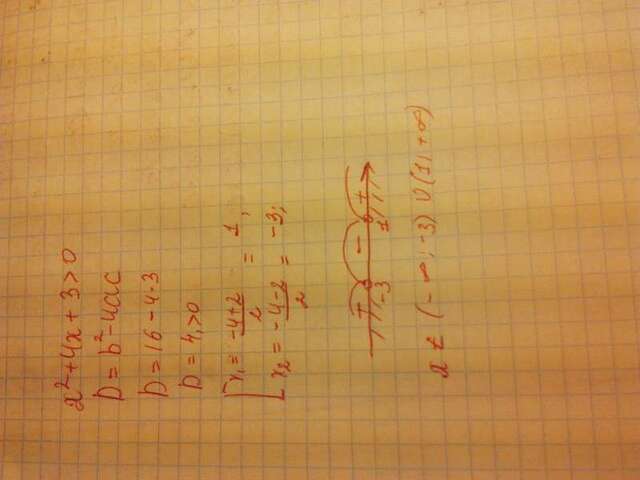 x²+4x+3>0
D=b²-4ac
D=16-4·3
D=4,>0
x₁ = (-4+2)/2 = 1;
x₂ = (-4-2)/2 = -3;
+ - +
-3 1
x ∈ (-∞; -3) ∪ (1; +∞)